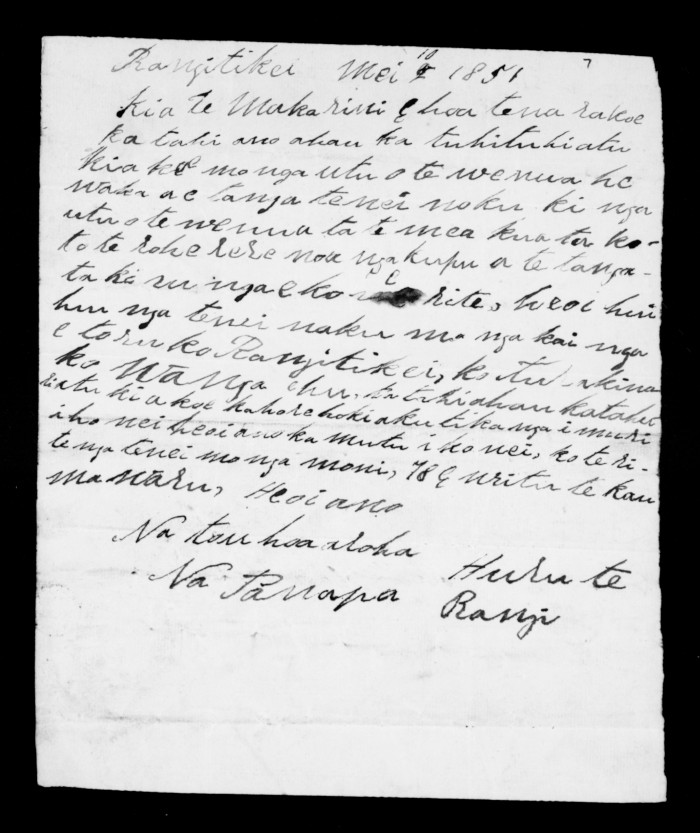 Rangitikei Mei 10 1851 7
Kia te Makarini e hoa tena rakoe
ka tahi ano ahau ka tuhituhi atu
kia koe mo nga utu o te wenua he
waka ae tanga tenei noku ki nga
utu o te wenua ta te mea kua ta ko-
to te rohe rere noa nga kupu a te tanga-
ta ki runga e kore e rite, heoi huri
hu nga tenei naku mo nga kai nga
e toru ko Rangitikei, ko Tu akina
ko Wanga ehu, ka tuhi ahau katahi
atu ki a koe kahore hoki aku tika nga i muri
i ho nei heoi ano ka mutu i konei, ko te ri-
tenga tenei mo nga moni, 78 e writu te kau
ma waru, Heoi ano
Na tou hoa aroha
Na Panapa Huru te
Rangi